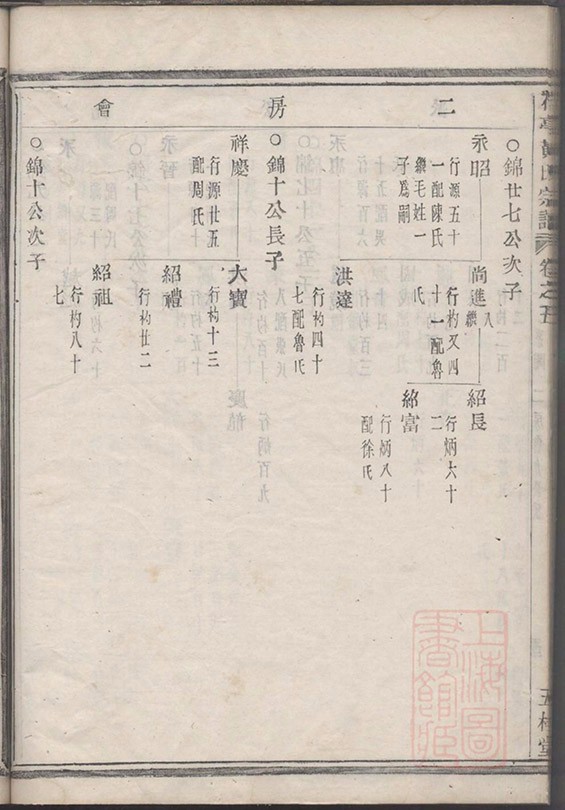 宗譜
卷之五
二房會
○錦廿七公次子
永昭
行源五十
一配陳氏
繼毛姓一
子爲嗣
尚進
入繼
行杓又四
十一配魯
氏
紹長
行炳六十
二
紹富
行炳八十
配徐氏
洪達
行杓四十
七配魯氏
○錦十公長子
祥慶
行源廿五
配周氏
大寶
行杓十三
紹禮
行杓廿二
紹祖
行杓八十
七
○錦十公次子
上海圖
書館藏